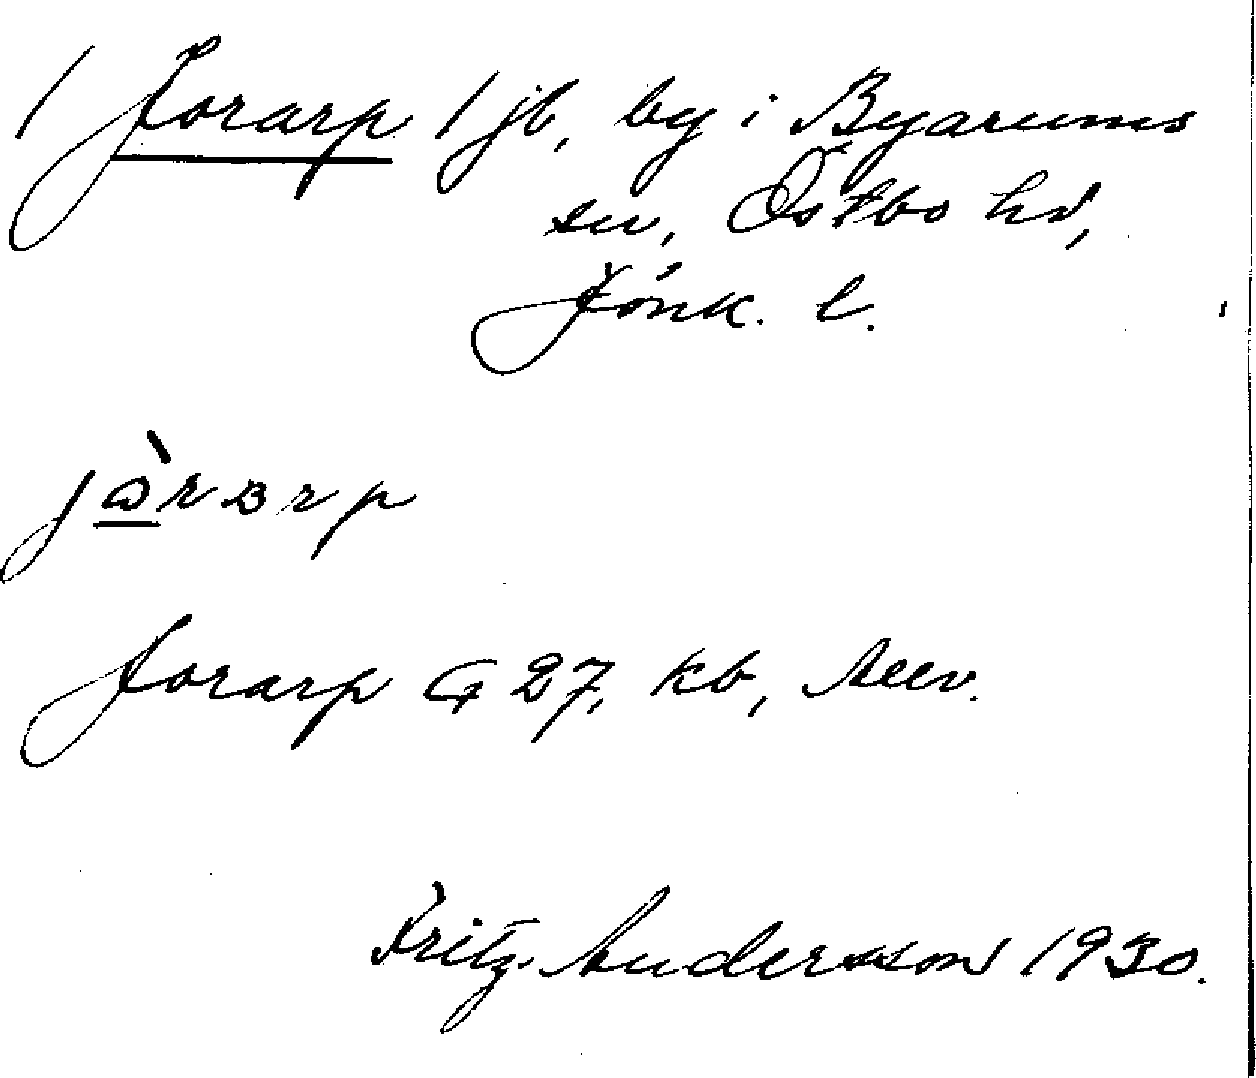 / Jorarp / jb, by i Byarums
sn, Östbo hd,
Jönk. l.
jòrarp
Jorarp G 27, kb,
Fritz Andersson 1930.